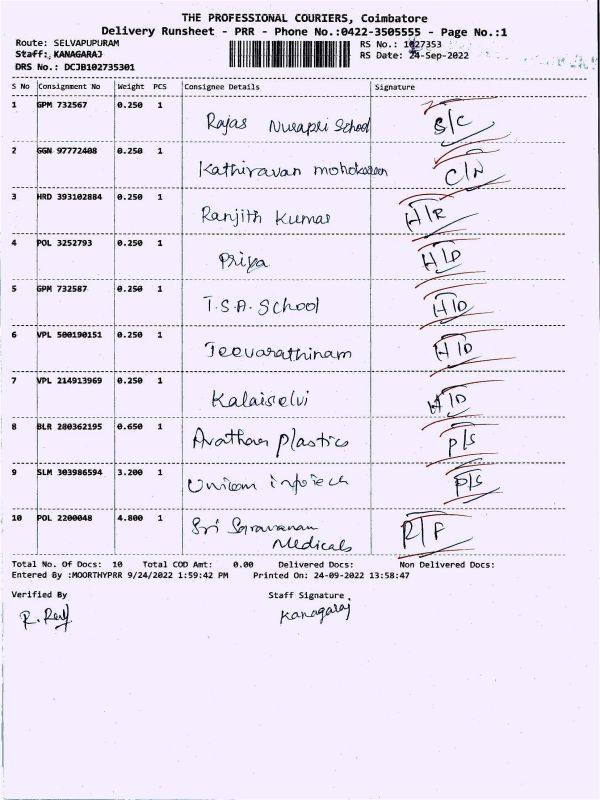 THE PROFESSIONAL COURIERS, Coimbatore
Delivery Runsheet - PRR - Phone No.:0422-3505555 - Page No.:1
Route: SELVAPUPURAM RS No.: 1027353
Staff:, KANAGARAJ RS Date: 24-Sep-2022
DRS No.: DCJB102735301
S No Consignment No Weight PCS Consignee Details Signature
1 GPM 732567 0.250 1 Rajas School S/C
2 GGN 97772408 0.250 1 Kathiravan C/N
3 HRD 393102884 0.250 1 Ranjith Kumar H/R
4 POL 3252793 0.250 1 Priya H/D
5 GPM 732587 0.250 1 T.S.A. School H/D
6 VPL 500190151 0.250 1 Jeevarathinam H/D
7 VPL 214913969 0.250 1 Kalaiselvi H/D
8 BLR 280362195 0.650 1 Avathar Plastics P/S
9 SLM 303986594 3.200 1 Unicom infotech P/S
10 POL 2200048 4.800 1 Sri Saravanan R/F
Medicals
Total No. Of Docs: 10 Total COD Amt: 0.00 Delivered Docs: Non Delivered Docs:
Entered By :MOORTHYPRR 9/24/2022 1:59:42 PM Printed On: 24-09-2022 13:58:47
Verified By Staff Signature
Kanagaraj